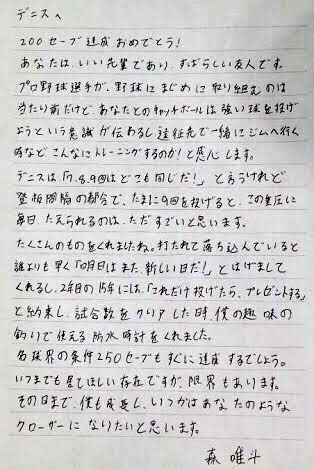 デニスへ
200セーブ達成おめでとう!
あなたは、いい先輩であり、すばらしい友人です。
プロ野球選手が、野球にまじめに取り組むのは
当たり前だけど、あなたとのキャッチボールは強い球を投げ
ようという意識が伝わるし遠征先で一緒にジムへ行く
時などこんなにトレーニングするのか!と感心します。
デニスは「7、8、9回はどこも同じだ!」と言うけれど
登板間隔の都合で、たまに9回を投げると、この重圧に
毎日、たえられるのは、ただすごいと思います。
たくさんのものをくれましたね。打たれて落ち込んでいると
誰よりも早く「明日はまた、新しい日だ!」とはげまして
くれるし、2年目の15年には、「これだけ投げたら、プレゼントする」
と約束し、試合数をクリアした時、僕の趣味の
釣りで使える防水時計をくれました。
名球界の条件250セーブもすぐに達成するでしょう。
いつまでも居てほしい存在ですが、限界もあります。
その日まで、僕も成長し、いつかはあなたのような
クローザーになりたいと思います。
森 唯斗